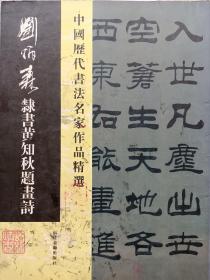 入世凡塵
空 生天地各
能畫進
中國歷代書法名家作品精選
劉炳森
隸書黃知秋題畫詩